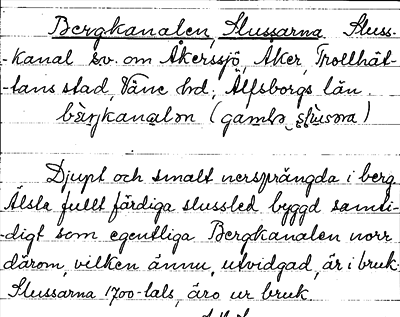 Bergkanalen, Slussarna Sluss-
-kanal sv. om Åkerssjö, Åker, Trollhät-
-tans stad, Väne hd, Älfsborgs län.
Djupt och smalt nersprängda i berg.
Älsta fullt färdiga slussled byggd samti-
-digt som egentliga Bergkanalen norr
därom, vilken ännu, utvidgad, är i bruk.
Slussarna 1700-tals, äro ur bruk.